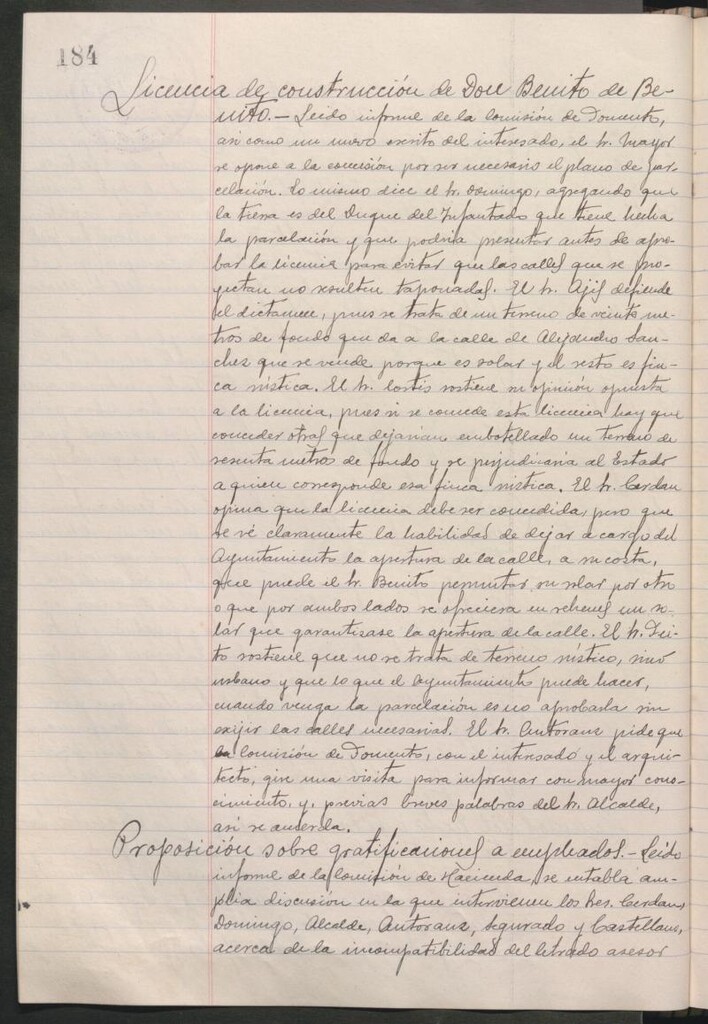 184
Licencia de construcción de Don Benito de Be-
nito.- Leido informe de la Comisión de Fomento,
asi como un nuevo escrito del interesado, el Sr. Mayor
se opone a la concesión por ser necesario el plano de par-
celación. Lo mismo dice el Sr. Domingo, agregando que
la tierra es del Duque del Infantado que tiene hecha
la parcelación y que podria presentar antes de apro-
bar la licencia para evitar que las calles que se pro-
yectan no resulten taponadas. El Sr. Ajis defiende
el dictamen, pues se trata de un terreno de veinte me-
tros de fondo que da a la calle de Alejandro San-
chez que se vende porque es solar y el resto es fin-
ca rústica. El Sr. Cortis sostiene su opinión opuesta
a la licencia, pues si se concede esta licencia hay que
conceder otras que dejarian embotellado un terreno de
sesenta metros de fondo y se perjudicaria al Estado
a quien corresponde esa finca rústica. El Sr. Cerdan
opina que la licencia debe ser concedida, pero que
se vé claramente la habilidad de dejar a cargo del
Ayuntamiento la apertura de la calle, a su costa,
que puede el Sr. Benito permutar su solar por otro
o que por ambos lados se ofreciera en rehenes un so-
lar que garantizase la apertura de la calle. El Sr.
sostiene que no se trata de terreno rústico, sinó
urbano y que lo que el Ayuntamiento puede hacer,
cuando venga la parcelación es no aprobarla sin
exijir las calles necesarias. El Sr. Antoranz pide que
la Comisión de Fomento, con el interesado y el arqui-
tecto, gire una visita para informar con mayor cono-
cimiento, y, previas breves palabras del Sr. Alcalde,
asi se acuerda.
Proposición sobre gratificaciones a empleados.- Leido
informe de la Comisión de Hacienda, se entabla am-
plia discusión en la que intervienen los Sres. Cerdan,
Domingo, Alcalde, Antoranz, Segurado y Castellano,
acerca de la incompatibilidad del letrado asesor